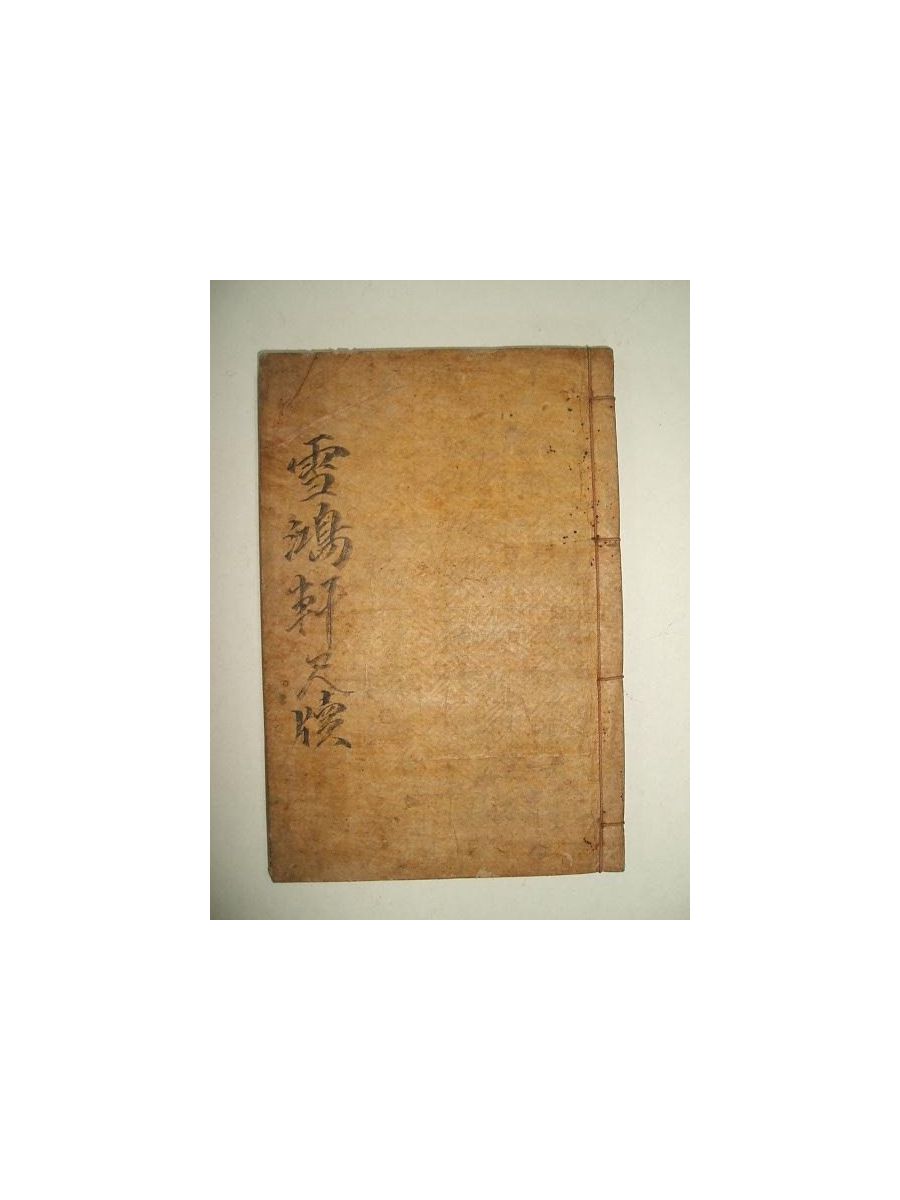 雪鴻軒尺牘